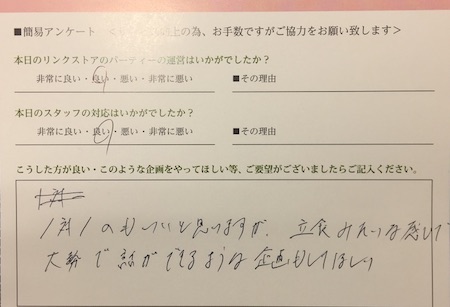 ■簡易アンケート 上の為、お手数ですがご協力をお願い致します＞
本日のリンクストアのパーティーの運営はいかがでしたか？
非常に良い・良い・悪い・非常に悪い ■その理由
本日のスタッフの対応はいかがでしたか？
非常に良い・良い・悪い・非常に悪い ■その理由
こうした方が良い・このような企画をやってほしい等、ご要望がございましたらご記入ください。
1対1のもいいと思いますが、立食みたいな感じで
大勢で話ができるような企画もしてほしい